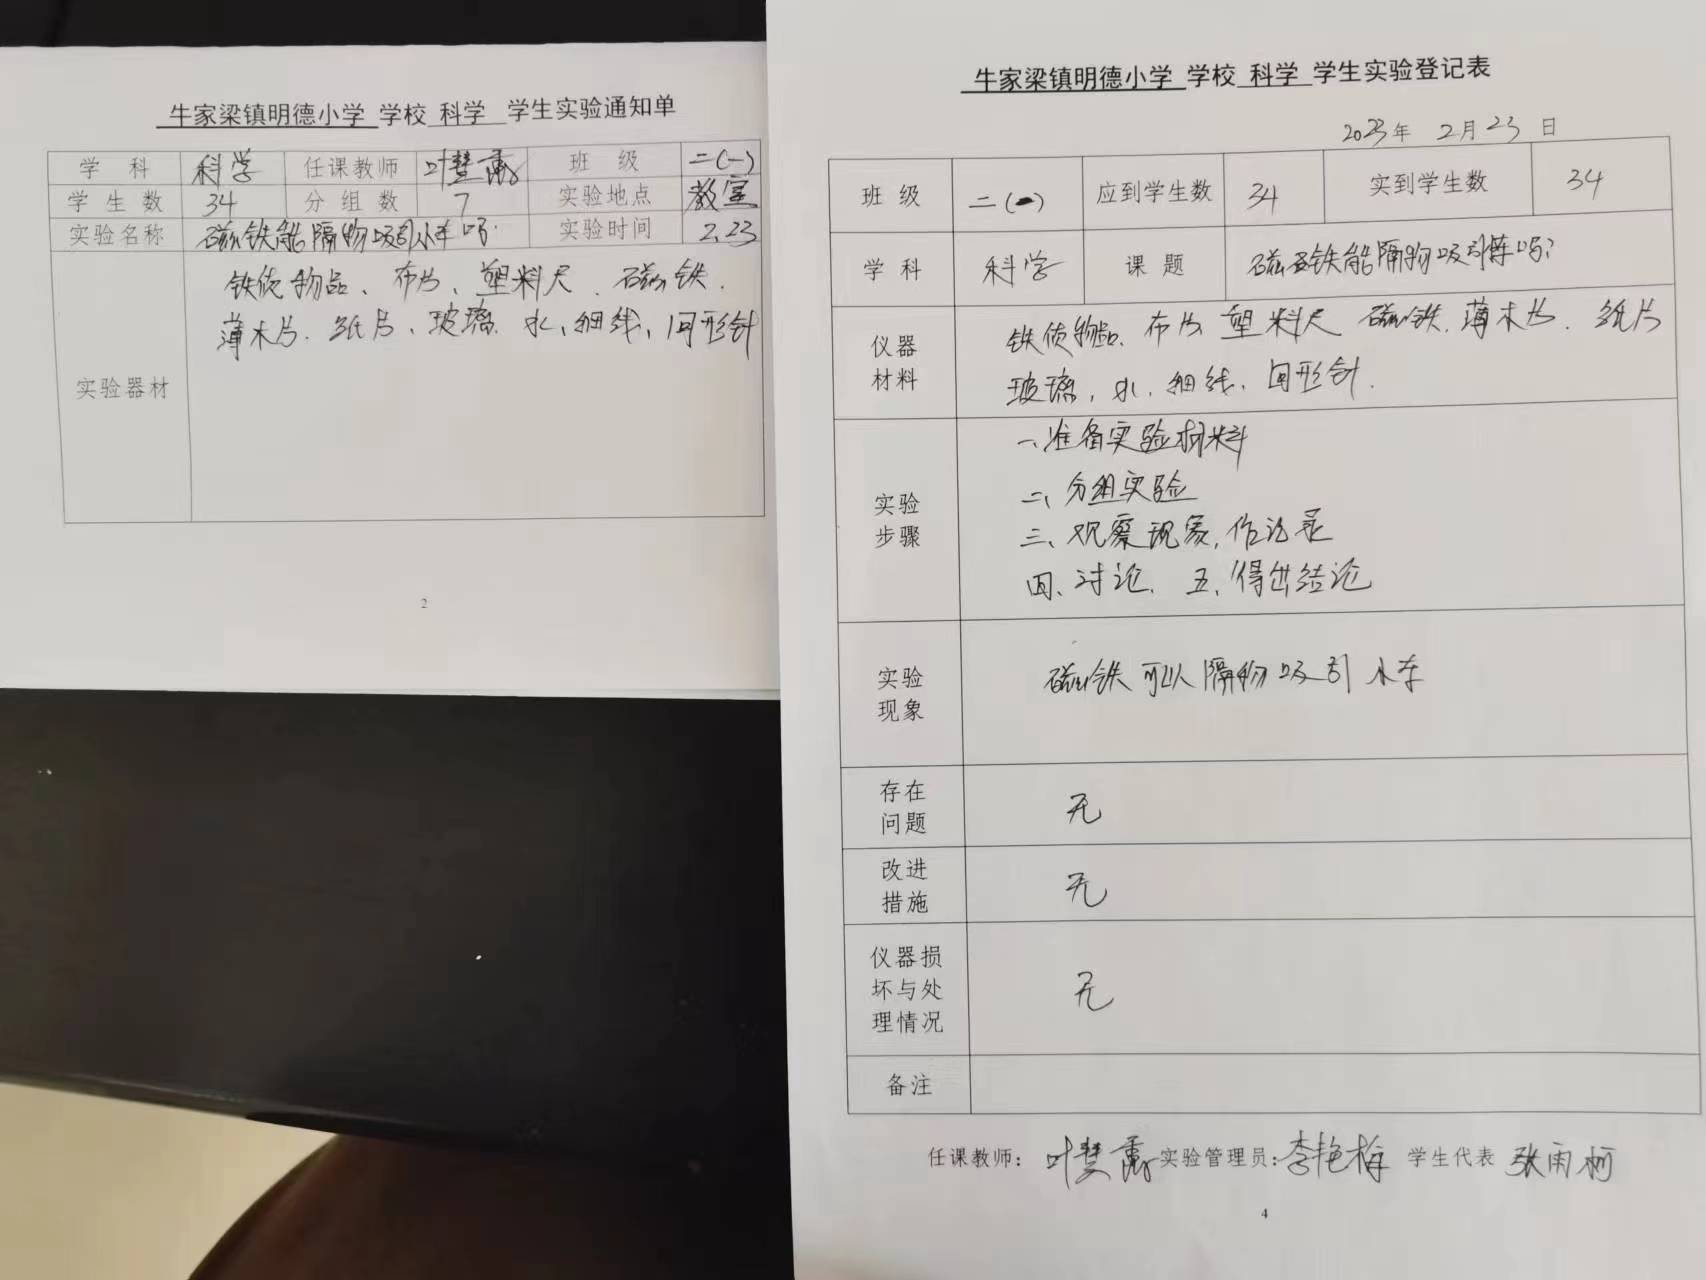 牛家梁镇明德小学 学校 科学 学生实验通知单
学科 科学 任课教师 班级 二(一)
学生数 34 分组数 7 实验地点 教室
实验名称 磁铁能隔物吸引小车吗? 实验时间 2.23
实验器材 铁质物品、布片、塑料尺、磁铁、
薄木片、纸片、玻璃、水、细线、回形针
2
牛家梁镇明德小学 学校 科学 学生实验登记表
2023年 2月23日
班级 二(一) 应到学生数 34 实到学生数 34
学科 科学 课题 磁铁能隔物吸引 吗?
仪器材料 铁质物品、布片、塑料尺、磁铁、薄木片、纸片
玻璃、水、细线、回形针.
实验步骤 一、准备实验材料
二、分组实验
三、观察现象,作记录
四、讨论、五、得出结论
实验现象 磁铁可以隔物吸引小车
存在问题 无
改进措施 无
仪器损坏与处理情况 无
备注
任课教师: 实验管理员:李艳梅 学生代表 张雨柯
4